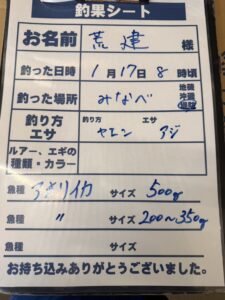 釣果シート
お名前 荒建 様
釣った日時 1月17日8時頃
釣った場所 みなべ 地磯 沖磯
釣り方 エサ 釣り方 ヤエン エサ アジ
ルアー、エギの種類・カラー
魚種 アオリイカ サイズ 500g
魚種 〃 サイズ 200~350g
魚種 サイズ
お持ち込みありがとうございました。